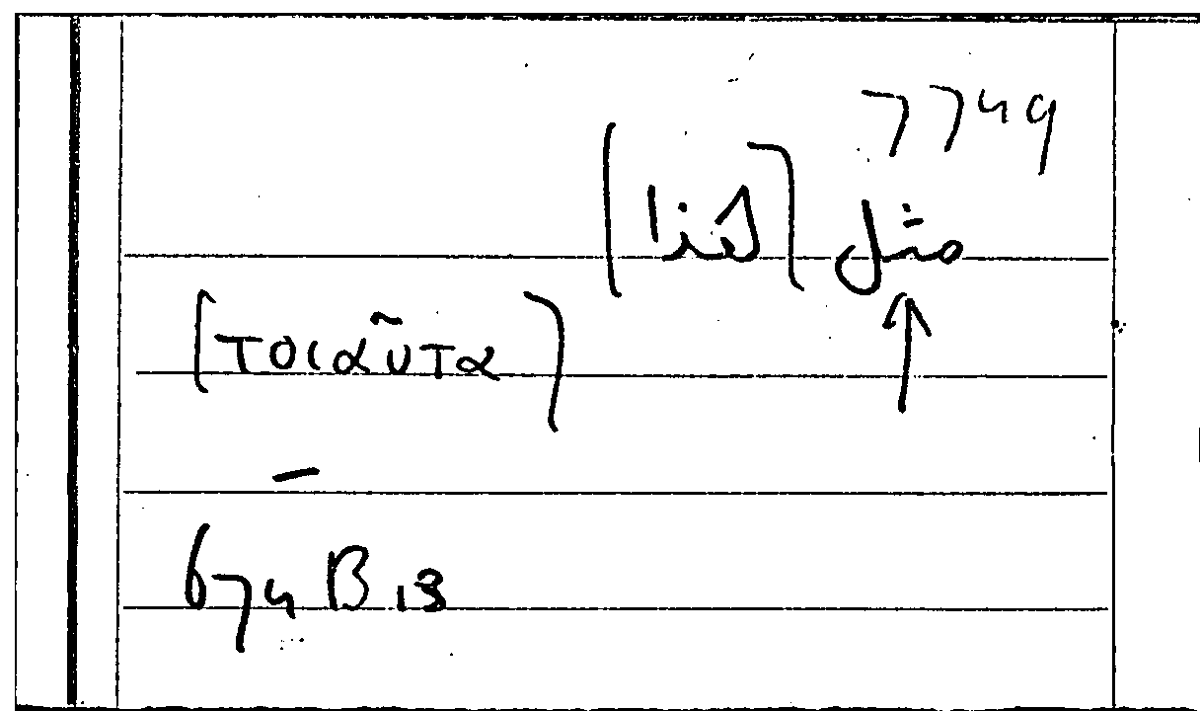 7749
مثل [هذا]
[τοιαῦτα]
–
674 B 13